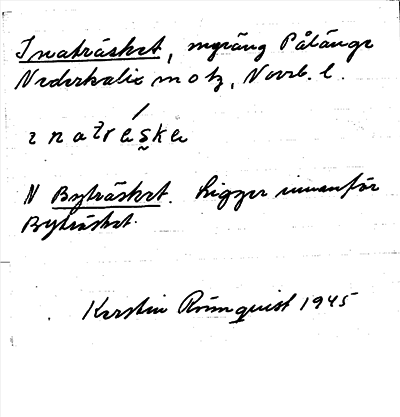 Inaträsket, mgräng Pålänge
Nederkalix sn o tg, Norrb. l.
ɩnatreṣka
N Byträsket. Ligger innanför
Byträsket.
Kerstin Rönnquist 1945